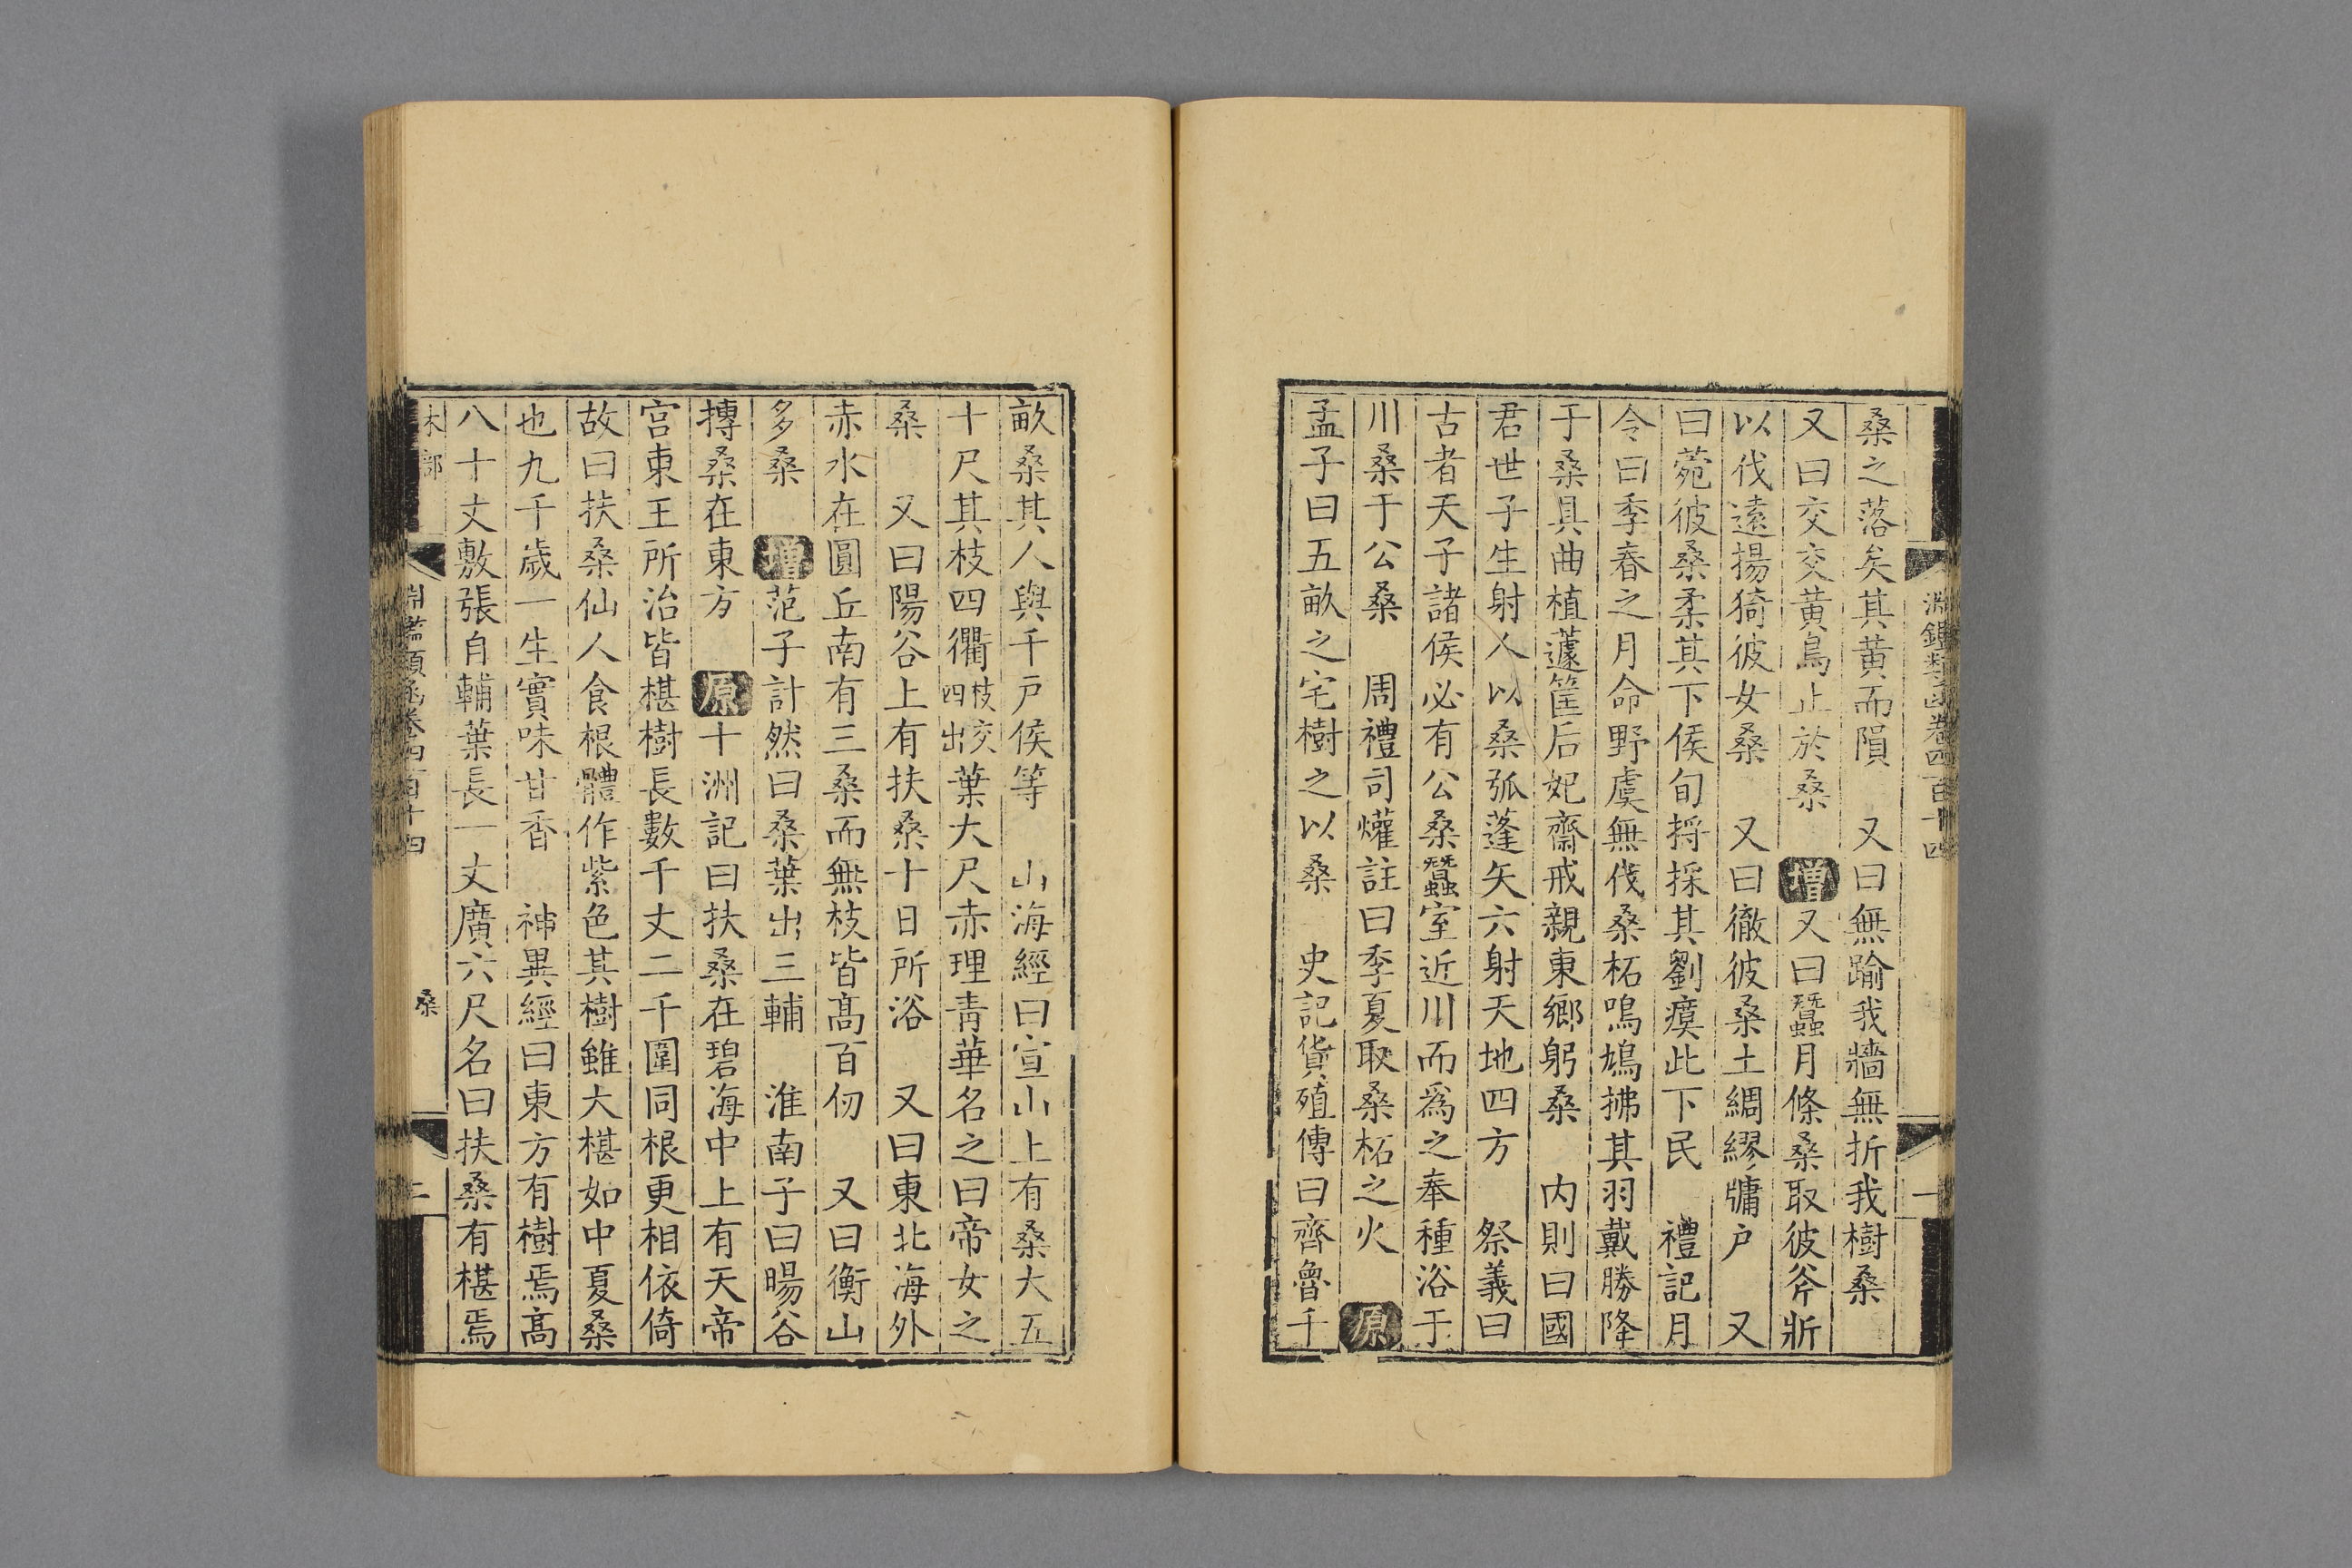 淵鑑類函卷四百十四 一
桑之落矣其黃而隕 又曰無踰我牆無折我樹桑
又曰交交黃鳥止於桑 增又曰蠶月條桑取彼斧斨
以伐遠揚猗彼女桑 又曰徹彼桑土綢繆牖户 又
曰菀彼桑柔其下侯旬捋採其劉瘼此下民 禮記月
令曰季春之月命野虞無伐桑柘鳴鳩拂其羽戴勝降
于桑具曲植蘧筐后妃齋戒親東鄉躬桑 内則曰國
君世子生射人以桑弧蓬矢六射天地四方 祭義曰
古者天子諸侯必有公桑蠶室近川而爲之奉種浴于
川桑于公桑 周禮司爟註曰季夏取桑柘之火 原
孟子曰五畝之宅樹之以桑 史記貨殖傳曰齊魯千
畝桑其人與千户侯等 山海經曰宣山上有桑大五
十尺其枝四衢枝交四出葉大尺赤理青華名之曰帝女之
桑 又曰陽谷上有扶桑十日所浴 又曰東北海外
赤水在圓丘南有三桑而無枝皆髙百仞 又曰衡山
多桑 增范子計然曰桑葉出三輔 淮南子曰暘谷
摶桑在東方 原十洲記曰扶桑在碧海中上有天帝
宮東王所治皆椹樹長數千丈二千圍同根更相依倚
故曰扶桑仙人食根體作紫色其樹雖大椹如中夏桑
也九千歲一生實味甘香 神異經曰東方有樹焉髙
八十丈敷張自輔葉長一丈廣六尺名曰扶桑有椹焉
木部 淵鑑類函卷四百十四 桑 二